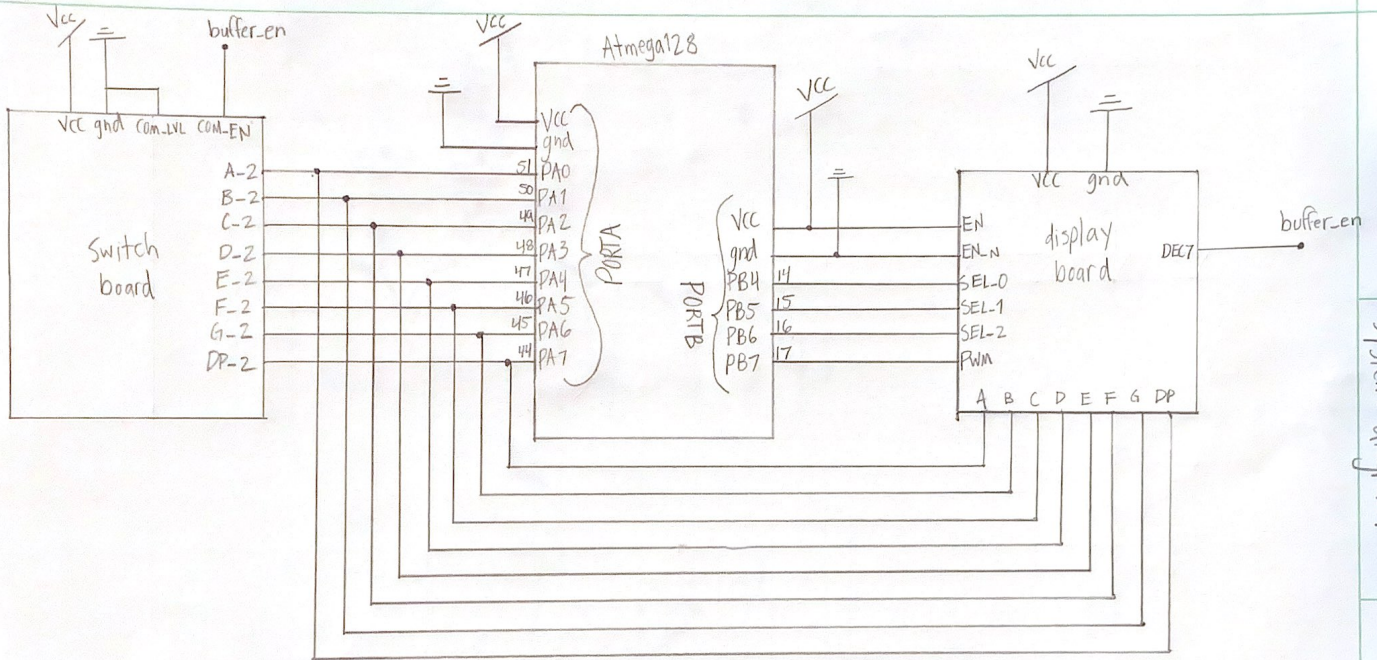 Vcc
buffer_en
Vcc
Atmega128
VCC gnd COM_LVL COM_EN
A-2
B-2
C-2
D-2
E-2
F-2
G-2
DP-2
Switch
board
Vcc
gnd
51 PA0
50 PA1
49 PA2
48 PA3
47 PA4
46 PA5
45 PA6
44 PA7
PORTA
PORTB
VCC
gnd
PB4 14
PB5 15
PB6 16
PB7 17
VCC
Vcc
VCC gnd
EN
EN_N
SEL-0
SEL-1
SEL-2
PWM
display
board
DEC7
buffer_en
A B C D E F G DP